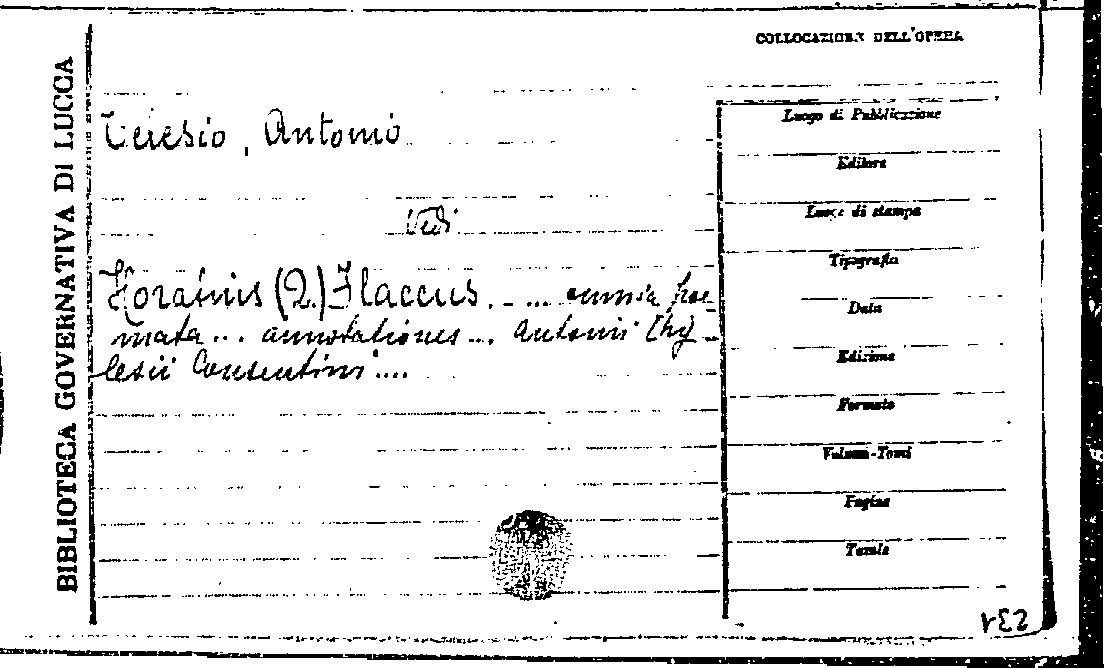 BIBLIOTECA GOVERNATIVA DI LUCCA
COLLOCAZIONE DELL'OPERA
Telesio, Antonio
Vedi
Horatius (Q.) Flaccus. _ ... omnia poe
mata... annotationes... Antonii Thy_
lesii Consentini....
Luogo di Pubblicazione
Editore
Luogo di stampa
Tipografia
Data
Edizione
Formato
Volumi-Tomi
Pagine
Tavole